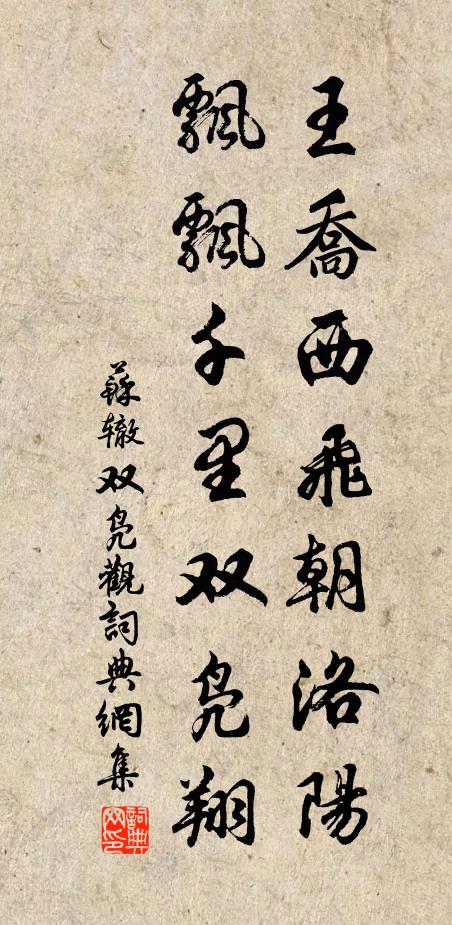 王喬西飛朝洛陽
飄飄千里双鳧翔
蘇辙双鳧觀詞典網集
詞典网印